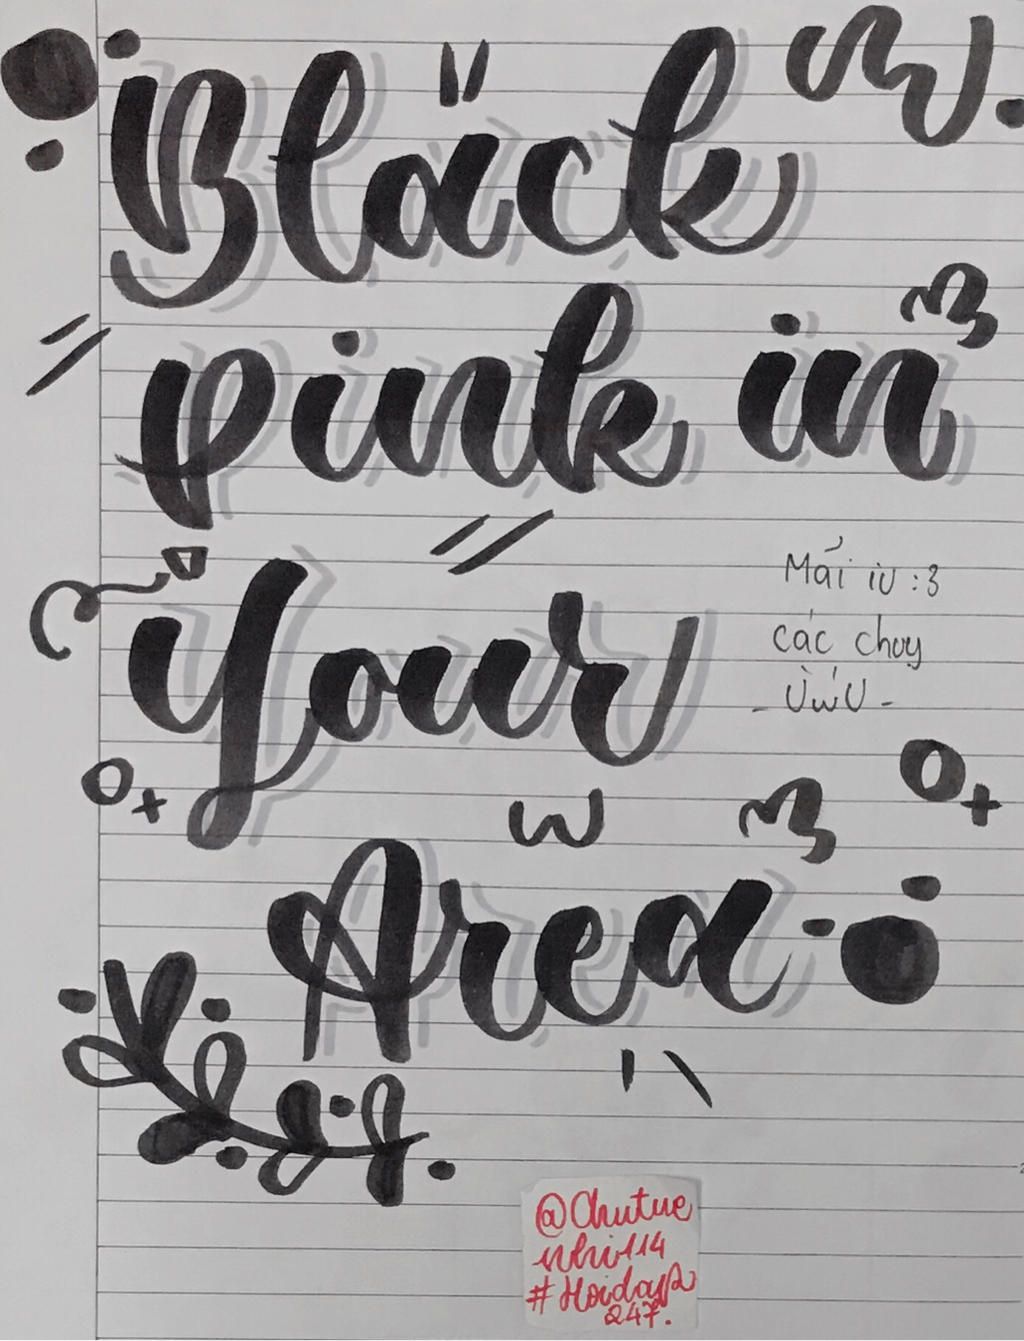 Black
pink in
Your
Mãi iu :3
các chay
- ÙwÚ -
Area
@Chutue
nhi1114
#Hoidap
247.